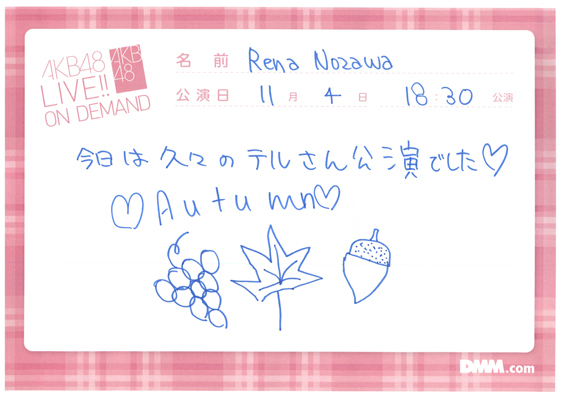 AKB48
LIVE!!
ON DEMAND
AKB
48
名前 Rena Nozawa
公演日 11月4日 18:30公演
今日は久々のテルさん公演でした♡
♡Autumn♡
DMM.com